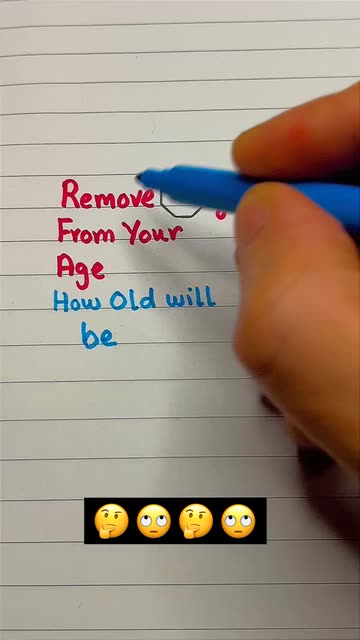 Remove
From Your
Age
How Old will
be